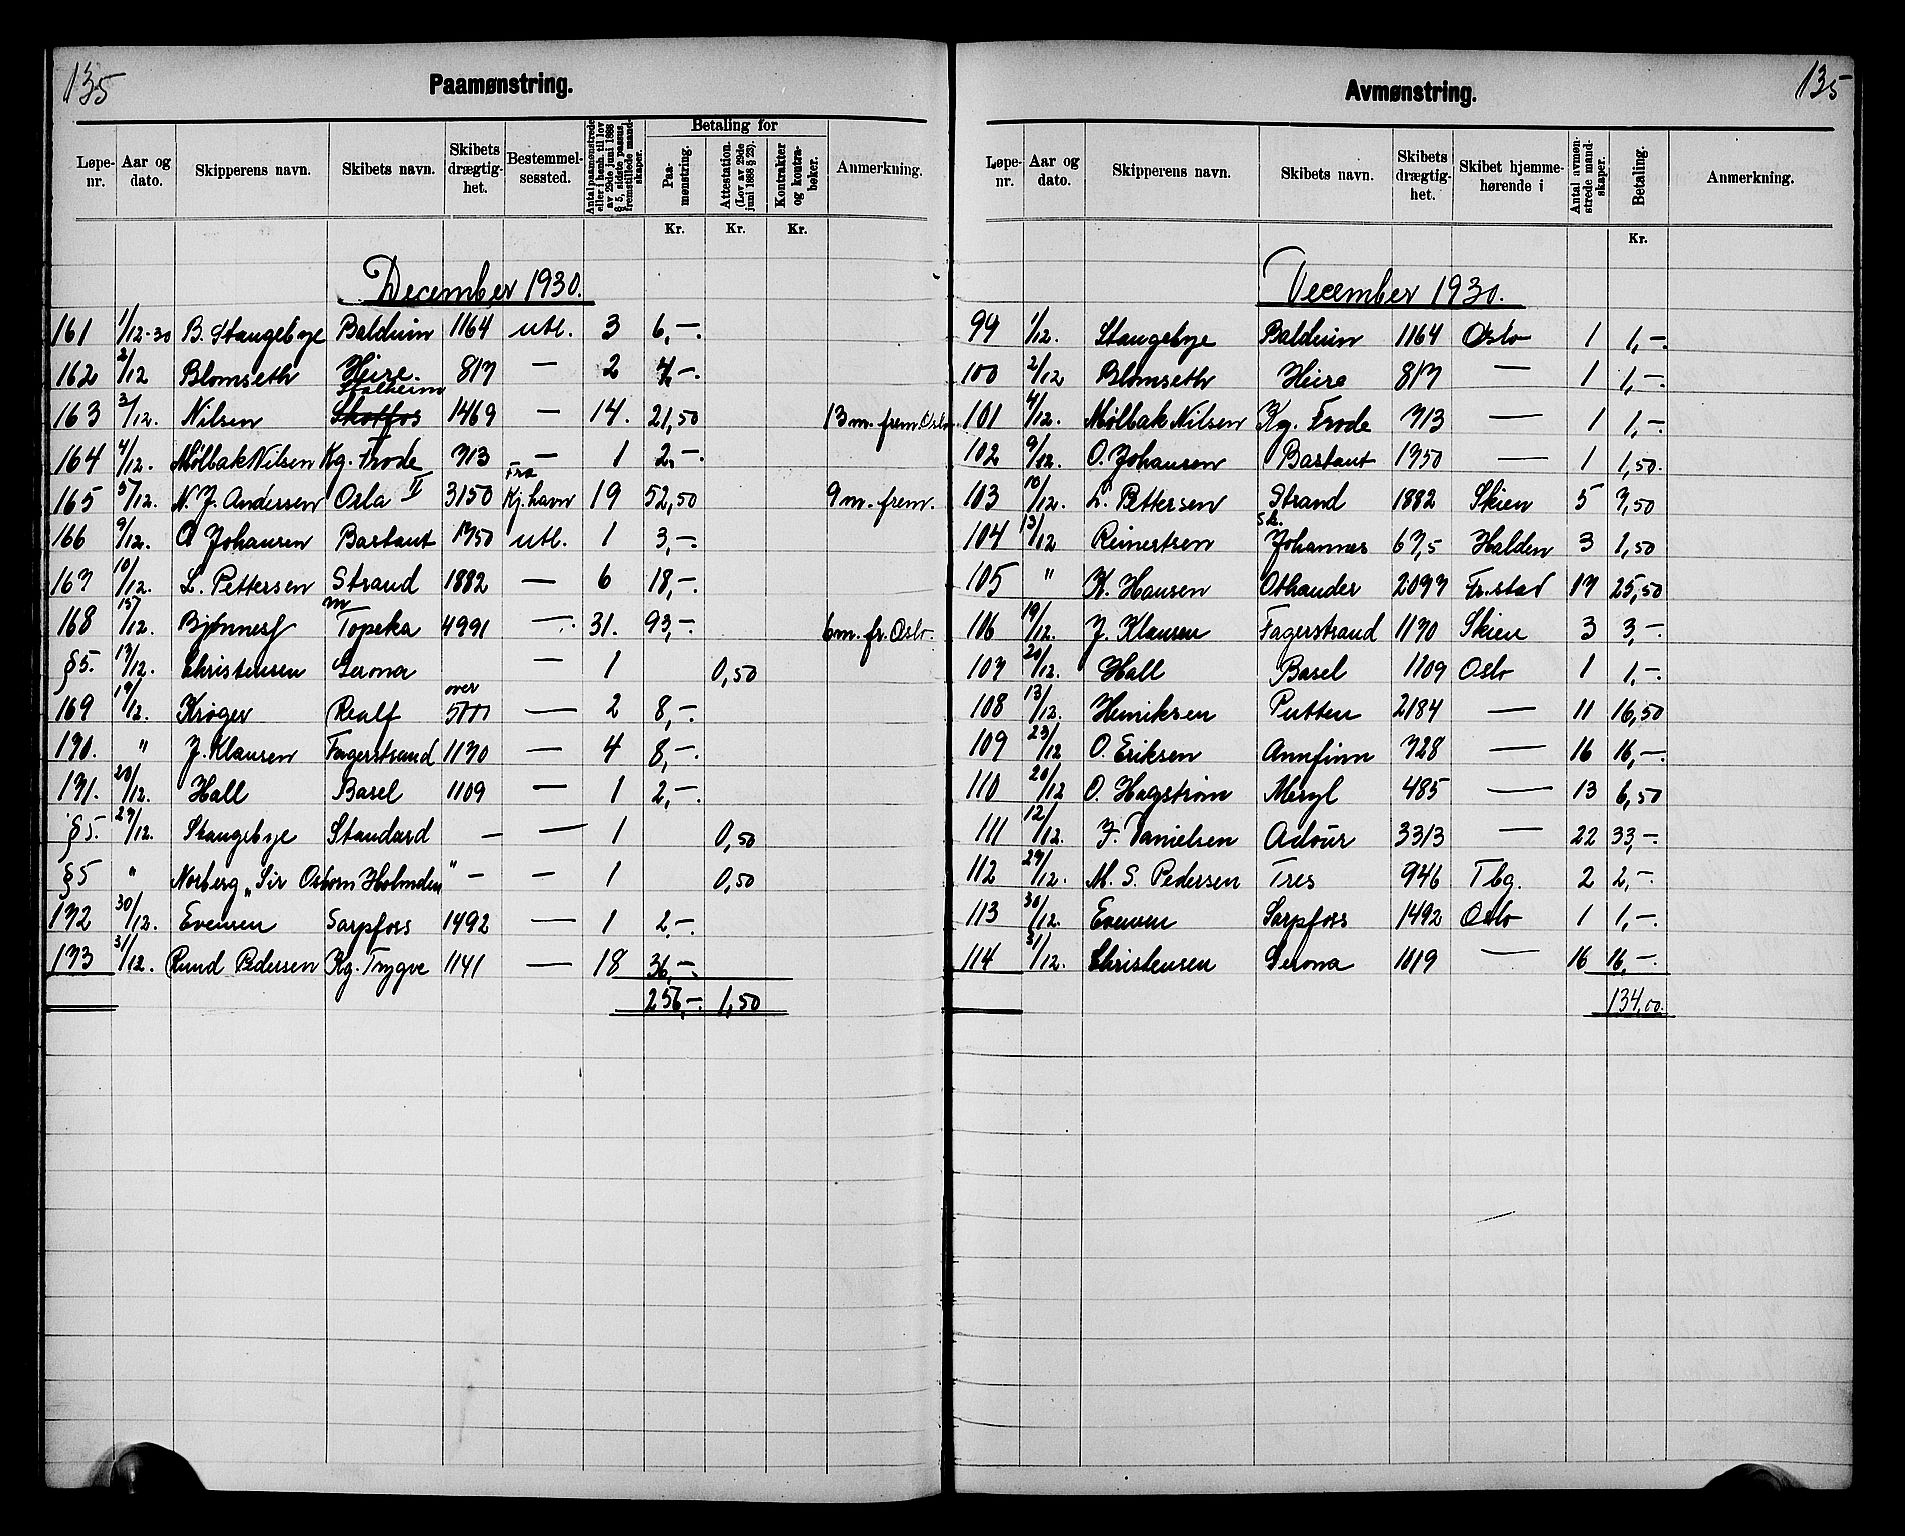 135
Paamønstring.
Løpe-nr. | Aar og dato. | Skipperens navn. | Skibets navn. | Skibets drægtig-het. | Bestemmel-sessted. | Antal paamønstrede eller i henh. til lov av 29de juni 1888 § 5, sidste passus, fremstillede mand-skaper. | Betaling for | Paa-mønstring. | Attestation. (Lov av 29de juni 1888 § 23). | Kontrakter og kontra-bøker. | Anmerkning.
Kr. | Kr. | Kr.
December 1930.
161 | 1/12-30 | B. Stangebye | Balduin | 1164 | utl. | 3 | 6,-
162 | 2/12 | Blomseth | Heire | 817 | — | 2 | 4,-
163 | 3/12. | Nilsen | Skotfos Stalheim | 1469 | — | 14. | 21,50 | 13 m. frem. Oslo.
164 | 4/12. | Mølbak Nilsen | Kg. Frode | 713 | — | 1 | 2,-
165 | 5/12. | N. J. Andersen | Orla II | 3150 | Fra Kj.havn | 19 | 52,50 | 9 m. frem.
166 | 9/12. | O Johansen | Bastant | 1750 | utl. | 1 | 3,-
167 | 10/12. | L. Pettersen | Strand | 1882 | — | 6 | 18,-
168 | 15/12. | | m Topeka | 4991 | — | 31. | 93,- | 6 m. fr. Oslo.
§ 5. | 17/12. | Christensen | Gerona | — | 1 | 0,50
169 | 19/12. | Krøger | Realf | over 5000 | — | 2 | 8,-
170. | " | J. Klausen | Fagerstrand | 1170 | — | 4 | 8,-
171. | 20/12. | Hall | Basel | 1109 | — | 1 | 2,-
§ 5. | 29/12. | Stangebye | Standard | — | — | 1 | 0,50
§ 5 | " | Norberg | "Sir Osborn Holmden" | — | — | 1 | 0,50
172 | 30/12. | Evensen | Sarpfoss | 1492 | — | 1 | 2,-
173 | 31/12. | Ruud Pedersen | Kg. Trygve | 1141 | — | 18 | 36,-
256,- | 1,50
135
Avmønstring.
Løpe-nr. | Aar og dato. | Skipperens navn. | Skibets navn. | Skibets drægtig-het. | Skibet hjemme-hørende i | Antal avmøn-strede mand-skaper. | Betaling. | Anmerkning.
Kr.
December 1930.
99 | 1/12. | Stangebye | Balduin | 1164 | Oslo | 1 | 1,-
100 | 2/12 | Blomseth | Heire | 817 | — | 1 | 1,-
101 | 4/12. | Mølbak Nilsen | Kg. Frode | 713 | — | 1 | 1,-
102 | 9/12. | O. Johansen | Bastant | 1750 | — | 1 | 1,50.
103 | 10/12. | L. Pettersen | Strand | 1882 | Skien | 5 | 7,50
104 | 13/12 | Reinertsen | Sk. Johannes | 67,5 | Halden | 3 | 1,50
105 | " | K. Hansen | Othander | 2097 | Fr.stad | 17 | 25,50
106 | 19/12. | J. Klausen | Fagerstrand | 1170 | Skien | 3 | 3,-
107 | 20/12. | Hall | Basel | 1109 | Oslo | 1 | 1,-
108 | 13/12. | Henriksen | Putten | 2184 | — | 11 | 16,50
109 | 23/12 | O. Eriksen | Annfinn | 728 | — | 16 | 16,-
110 | 20/12 | O. Hagstrøm | Meryl | 485 | — | 13 | 6,50
111 | 12/12. | F. Danielsen | Adour | 3313 | — | 22 | 33,-
112 | 29/12. | M. S. Pedersen | Tres | 946 | Tbg. | 2 | 2,-
113 | 30/12. | Evensen | Sarpfoss | 1492 | Oslo | 1 | 1,-
114 | 31/12. | Christensen | Gerona | 1019 | — | 16 | 16,-
134,00.